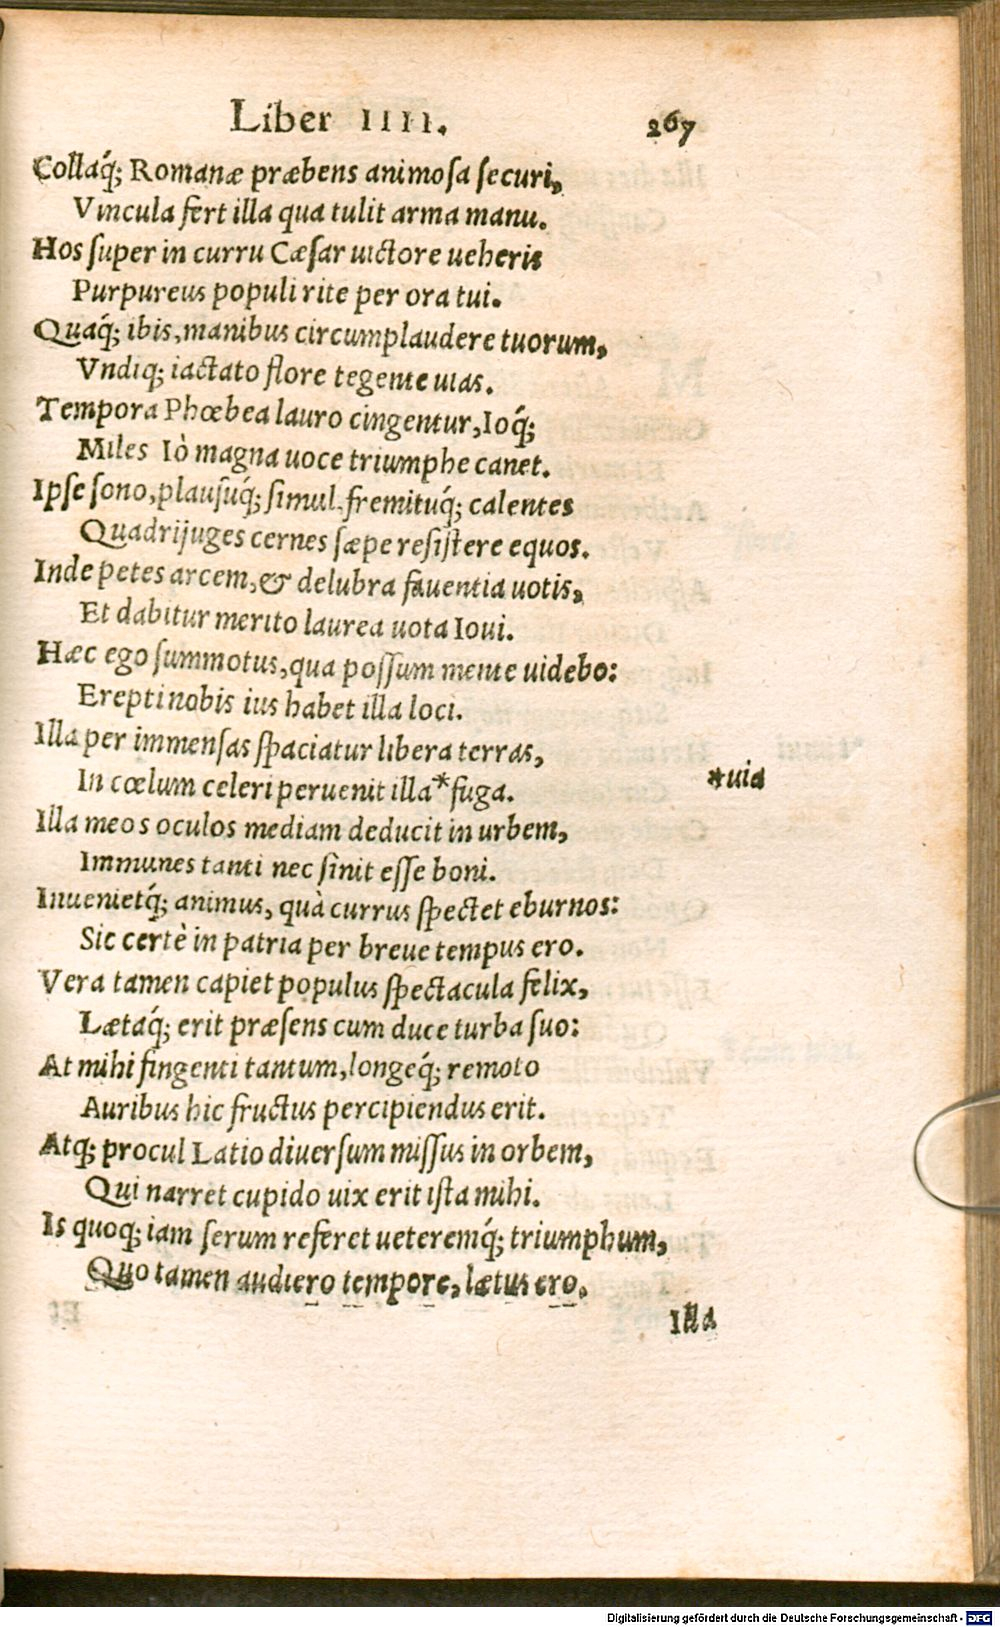 Liber IIII. 267
Collaq́; Romanæ præbens animosa securi,
Vincula fert illa qua tulit arma manu.
Hos super in curru Cæsar uictore ueheris
Purpureus populi rite per ora tui.
Quaq́; ibis, manibus circumplaudere tuorum,
Vndiq; iactato flore tegente uias.
Tempora Phœbea lauro cingentur, Ioq́;
Miles Iò magna uoce triumphe canet.
Ipse sono, plausuq́; simul fremituq́; calentes
Quadrijuges cernes sæpe resistere equos.
Inde petes arcem, & delubra fauentia uotis,
Et dabitur merito laurea uota Ioui.
Hæc ego summotus, qua possum mente uidebo:
Erepti nobis ius habet illa loci.
Illa per immensas spaciatur libera terras,
In cœlum celeri peruenit illa *fuga. *uia
Illa meos oculos mediam deducit in urbem,
Immunes tanti nec sinit esse boni.
Inuenietq́; animus, quà currus spectet eburnos:
Sic certè in patria per breue tempus ero.
Vera tamen capiet populus spectacula felix,
Lætaq́; erit præsens cum duce turba suo:
At mihi fingenti tantum, longeq́; remoto
Auribus hic fructus percipiendus erit.
Atq; procul Latio diuersum missus in orbem,
Qui narret cupido uix erit ista mihi.
Is quoq; iam serum referet ueteremq́; triumphum,
Quo tamen audiero tempore, lætus ero.
Illa
Digitalisierung gefördert durch die Deutsche Forschungsgemeinschaft - DFG